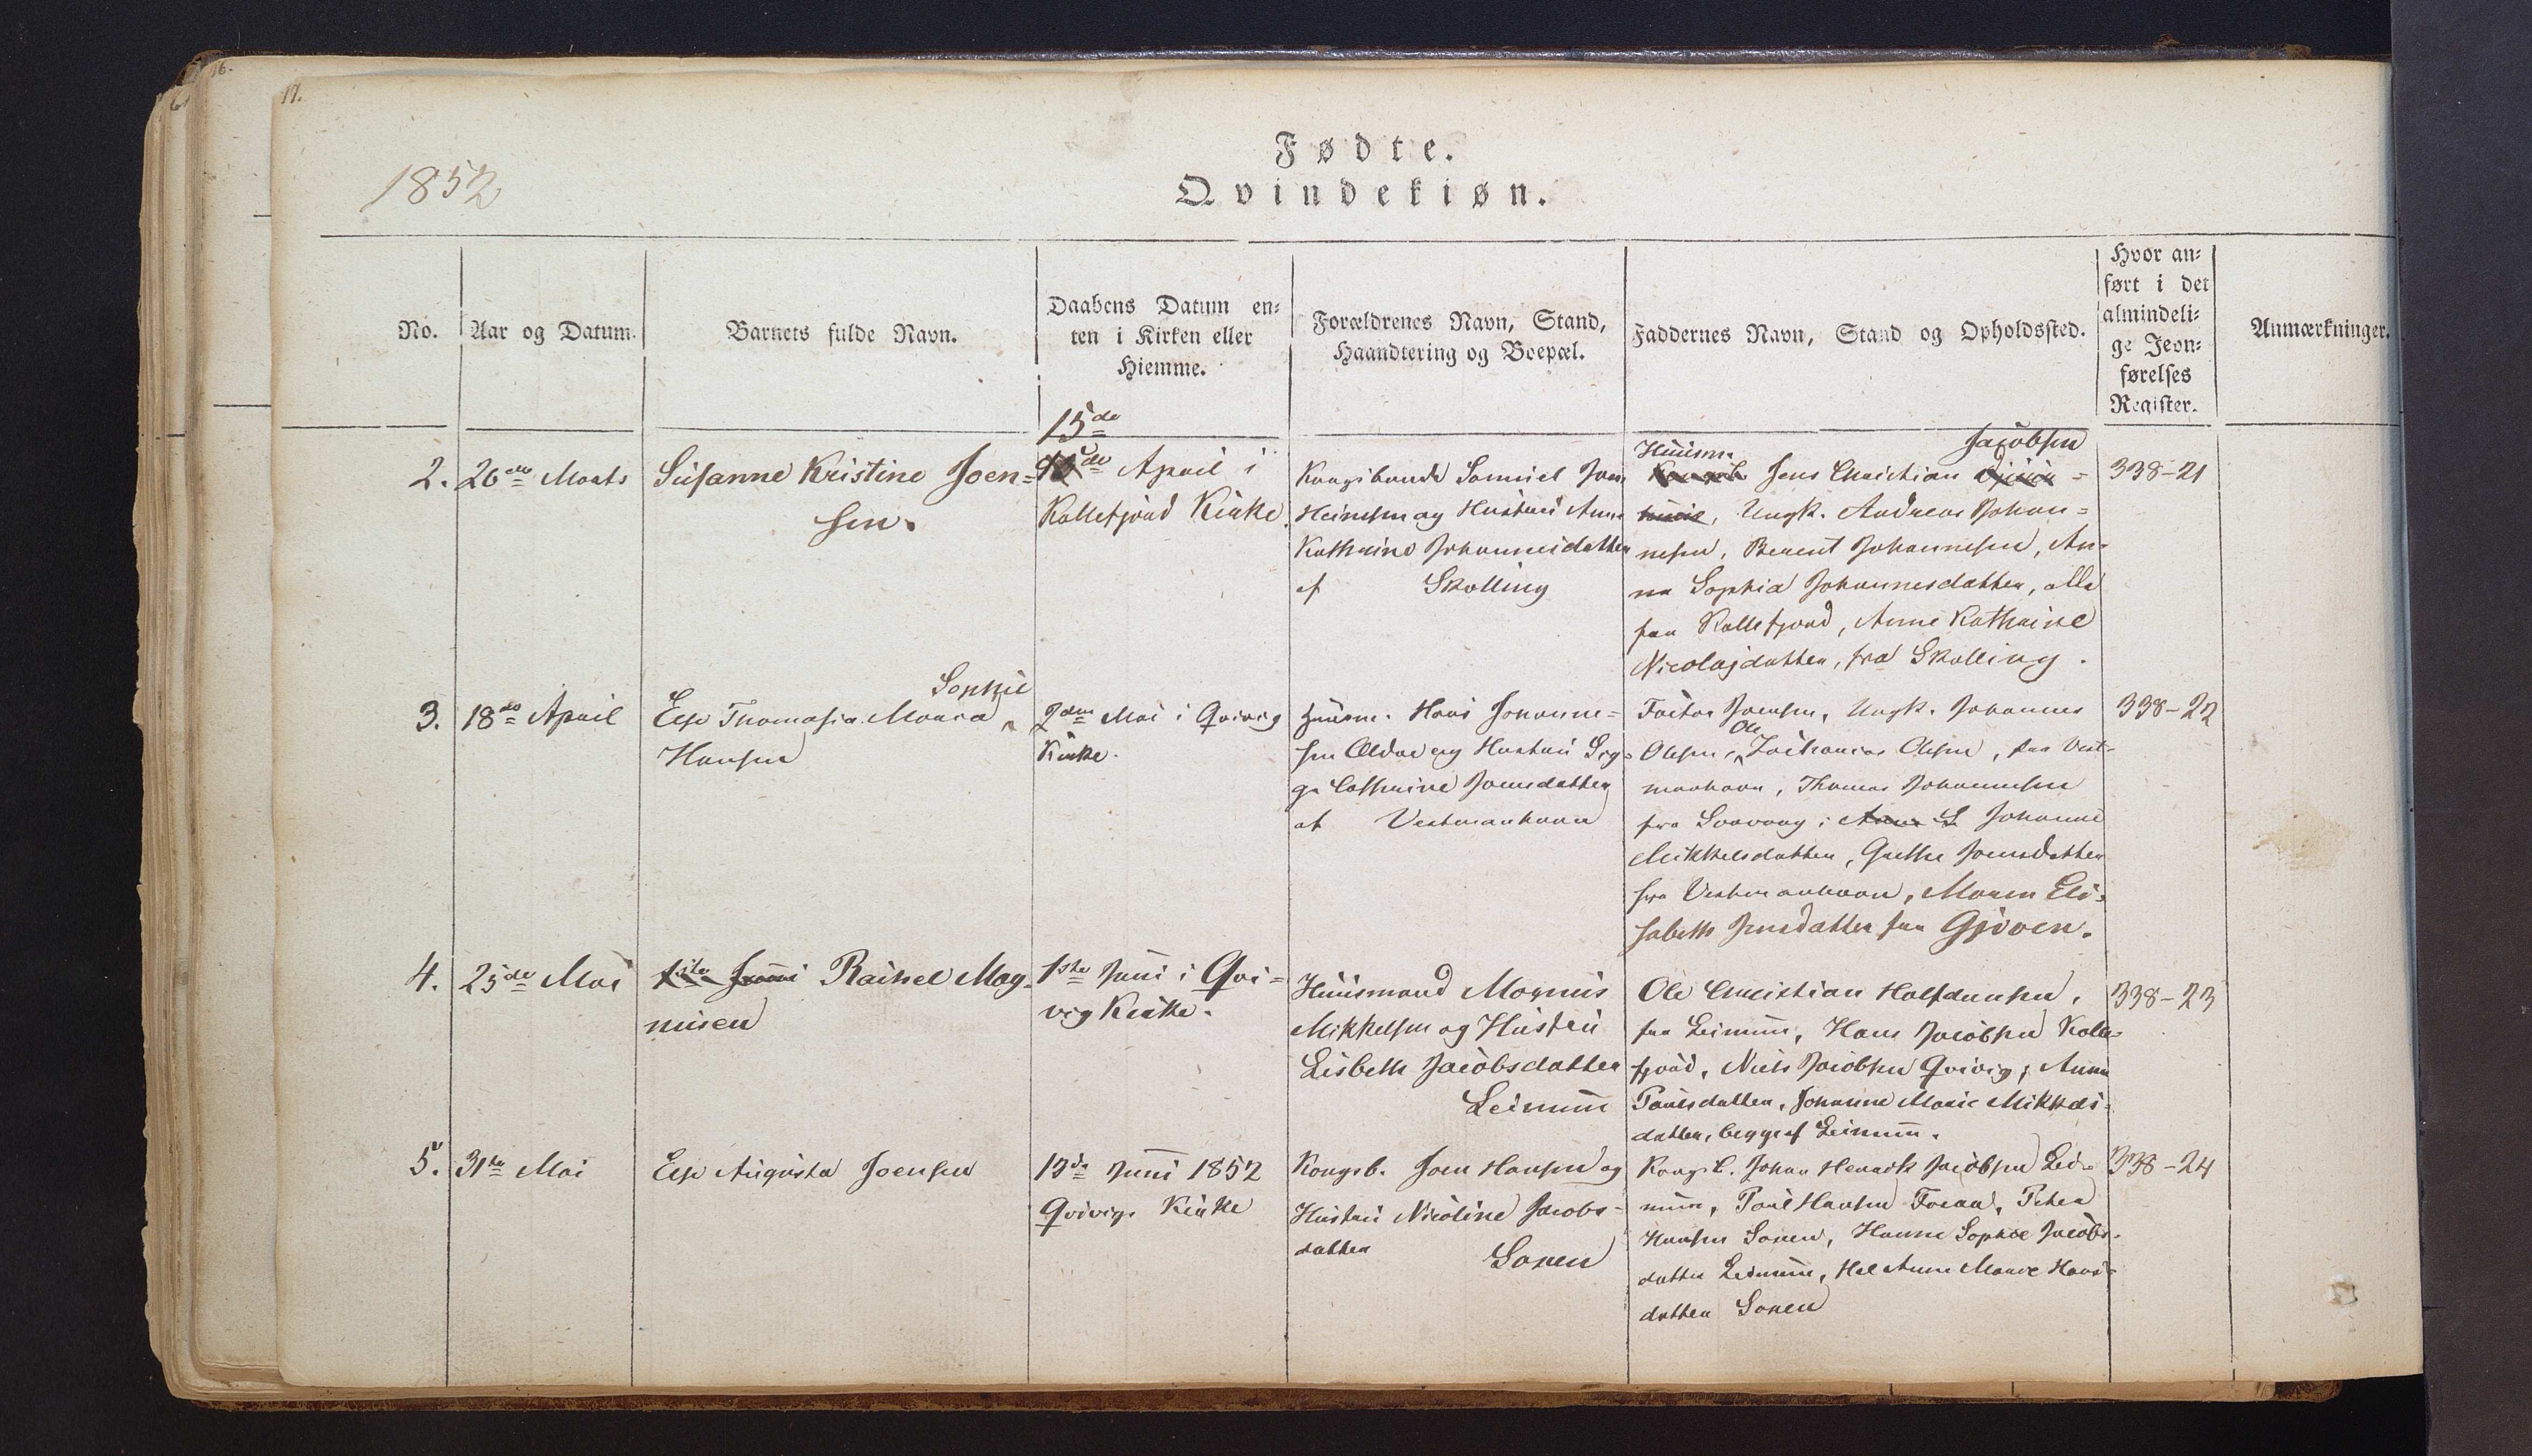 16.
17.
1852
Fødte.
Qvindekiøn.
No.
Aar og Datum.
Barnets fulde Navn.
Daabens Datum en=
ten i Kirken eller
Hiemme.
Forældrenes Navn, Stand,
Haandtering og Boepæl.
Faddernes Navn, Stand og Opholdssted.
Hvor an=
ført i det
almindeli=
ge Jevn=
førelses
Register.
Anmærkninger.
2.
26de Marts
Susanne Kristine Joen=
sen.
15de
de April i
Kollefjord Kirke.
Kongsbonde Samuel Joen
Heinesen og Hustru Anne
Kathrine Johannesdatter
af Skælling
Huusm. Jacobsen
Jens Christian
Ungk. Andreas Johan=
nesen, Berent Johannesen, An=
na Sophia Johannesdatter, alle
fra Kollefjord, Anne Kathrine
Nicolajdatter, fra Skælling.
338-21
3.
18de April
Sophie
Else Thomasia Maria
Hansen
2den Mai i Qvivig
Kirke.
Huusm. Hans Johanne=
sen Ældre og Hustru Sig=
ga Cathrine Joensdatter
af Vestmanhavn
Joensen, Ungk. Johannes
Ole
Olesen, Zacharias Olesen, fra Vest=
manhavn, Thomas Johannesen
fra Saxvaag; Johanne
Mikkelsdatter, Grethe Joensdatter
fra Vestmanhavn, Maren Eli=
sabeth Jensdatter fra Gjöven.
338-22
4.
25de Mai
1ste Juni Rachel Mag=
nusen
1ste Juni i Qvi=
vig Kirke.
Huusmand Magnus
Mikkelsen og Hustru
Lisbeth Jacobsdatter
Leinum
Ole Christian Halfdansen,
fra Leinum, Hans Jacobsen Kolle=
fjord, Niels Jacobsen Qvivig; Anna
Poulsdatter, Johanne Marie Mikkels=
datter, begge af Leinum.
338-23
5.
31te Mai
Else Augusta Joensen
13de Juni 1852
Qvivigs Kirke
Kongsb. Joen Hansen og
Hustru Nicoline Jacobs=
datter
Saxen
Kongsb. Johan Hendrik Jacobsen Lei=
num, Poul Hansen, Peter
Hansen Saxen, Hanne Sophie Jacobs=
datter Leinum, Anne Marie Hans=
datter Saxen
338-24